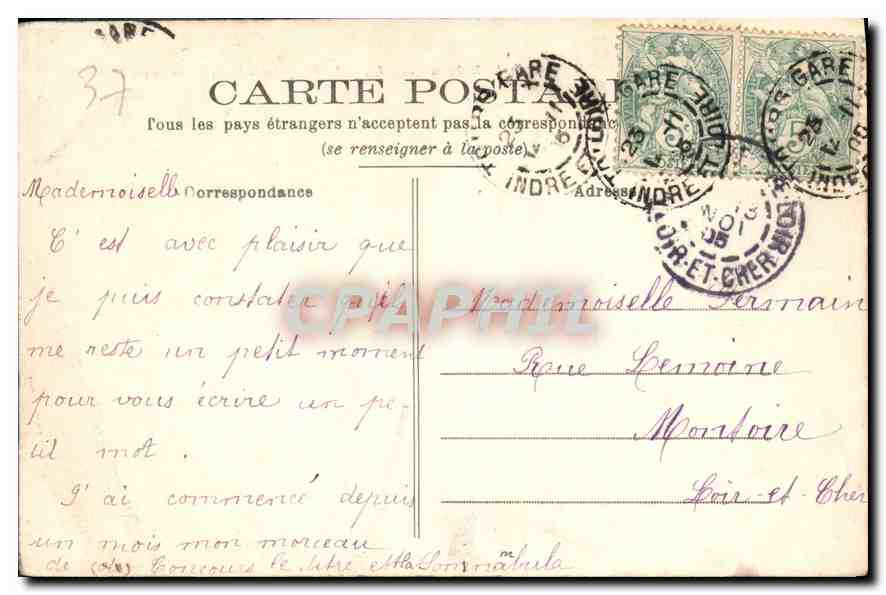 GARE
37
CARTE POSTA
Tous les pays étrangers n'acceptent pas la correspondance
(se renseigner à la poste)
TOURS-GARE 23 INDRE
GARE 23 INDRE-ET-LOIRE
GARE 23 INDRE
5
LOIR-ET-CHER 05
Correspondance
Adresse
Mademoiselle
C'est avec plaisir que
je puis constater qu'il
me reste un petit moment
pour vous écrire un pe-
tit mot.
J'ai commencé depuis
un mois mon morceau
de Concours le titre est la Sommnabula
Mademoiselle Germain
Rue Lemoine
Montoire
Loir-et-Cher
CPAPHIL